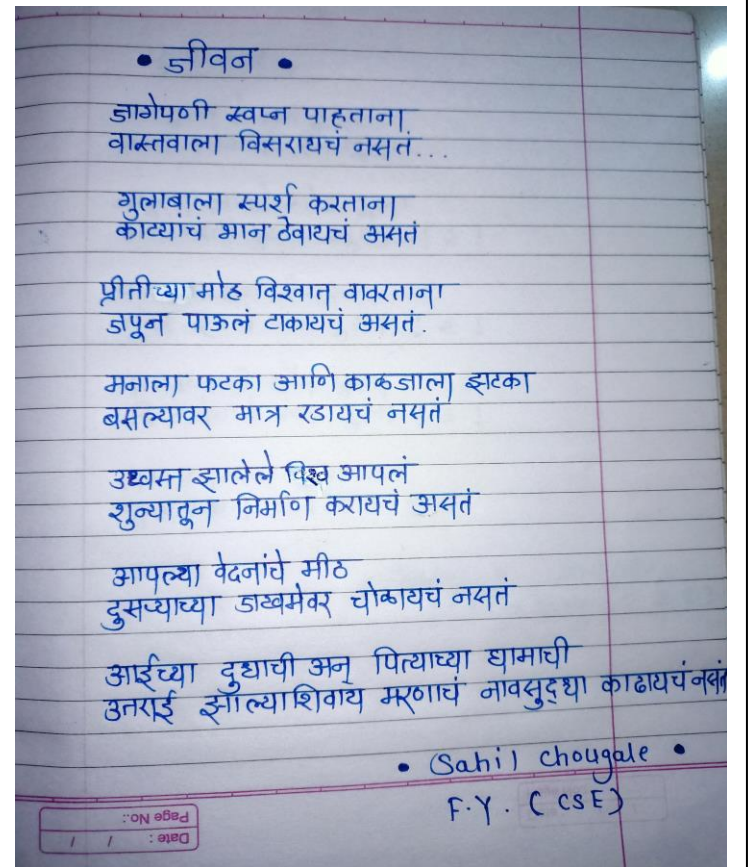 • जीवन •
जागेपणी स्वप्न पाहताना
वास्तवाला विसरायचं नसतं...
गुलाबाला स्पर्श करताना
काट्यांचं भान ठेवायचं असतं
प्रीतीच्या मोह विश्वात वावरताना
जपून पाऊलं टाकायचं असतं.
मनाला फटका आणि काळजाला झटका
बसल्यावर मात्र रडायचं नसतं
उध्वस्त झालेले विश्व आपलं
शुन्यातून निर्माण करायचं असतं
आपल्या वेदनांचे मीठ
दुसऱ्याच्या जखमेवर चोळायचं नसतं
आईच्या दुधाची अन् पित्याच्या घामाची
उतराई झाल्याशिवाय मरणाचं नावसुद्धा काढायचं नसतं
• Sahil Chougale •
F.Y. (CSE)
Page No.:
Date: / /